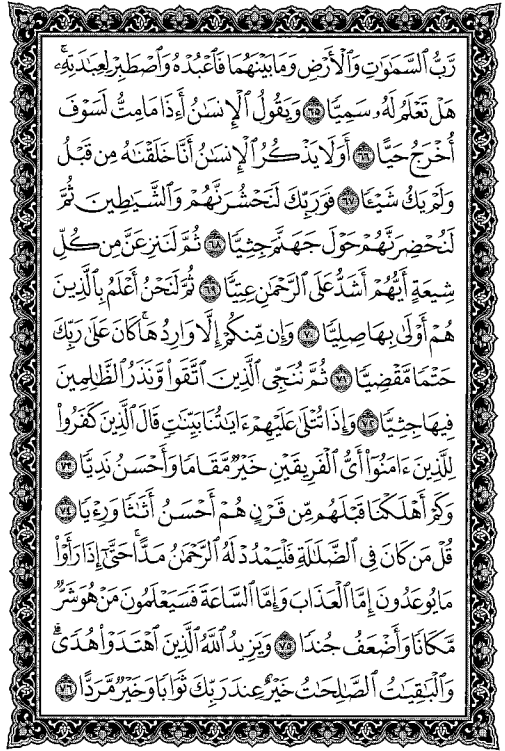 رَّبُّ ٱلسَّمَٰوَٰتِ وَٱلْأَرْضِ وَمَا بَيْنَهُمَا فَٱعْبُدْهُ وَٱصْطَبِرْ لِعِبَٰدَتِهِۦۚ
هَلْ تَعْلَمُ لَهُۥ سَمِيًّا ٦٥ وَيَقُولُ ٱلْإِنسَٰنُ أَءِذَا مَا مِتُّ لَسَوْفَ
أُخْرَجُ حَيًّا ٦٦ أَوَلَا يَذْكُرُ ٱلْإِنسَٰنُ أَنَّا خَلَقْنَٰهُ مِن قَبْلُ
وَلَمْ يَكُ شَيْـًٔا ٦٧ فَوَرَبِّكَ لَنَحْشُرَنَّهُمْ وَٱلشَّيَٰطِينَ ثُمَّ
لَنُحْضِرَنَّهُمْ حَوْلَ جَهَنَّمَ جِثِيًّا ٦٨ ثُمَّ لَنَنزِعَنَّ مِن كُلِّ
شِيعَةٍ أَيُّهُمْ أَشَدُّ عَلَى ٱلرَّحْمَٰنِ عِتِيًّا ٦٩ ثُمَّ لَنَحْنُ أَعْلَمُ بِٱلَّذِينَ
هُمْ أَوْلَىٰ بِهَا صِلِيًّا ٧٠ وَإِن مِّنكُمْ إِلَّا وَارِدُهَاۚ كَانَ عَلَىٰ رَبِّكَ
حَتْمًا مَّقْضِيًّا ٧١ ثُمَّ نُنَجِّى ٱلَّذِينَ ٱتَّقَوا۟ وَّنَذَرُ ٱلظَّٰلِمِينَ
فِيهَا جِثِيًّا ٧٢ وَإِذَا تُتْلَىٰ عَلَيْهِمْ ءَايَٰتُنَا بَيِّنَٰتٍ قَالَ ٱلَّذِينَ كَفَرُوا۟
لِلَّذِينَ ءَامَنُوٓا۟ أَىُّ ٱلْفَرِيقَيْنِ خَيْرٌ مَّقَامًا وَأَحْسَنُ نَدِيًّا ٧٣
وَكَمْ أَهْلَكْنَا قَبْلَهُم مِّن قَرْنٍ هُمْ أَحْسَنُ أَثَٰثًا وَرِءْيًا ٧٤
قُلْ مَن كَانَ فِى ٱلضَّلَٰلَةِ فَلْيَمْدُدْ لَهُ ٱلرَّحْمَٰنُ مَدًّاۚ حَتَّىٰٓ إِذَا رَأَوْا۟
مَا يُوعَدُونَ إِمَّا ٱلْعَذَابَ وَإِمَّا ٱلسَّاعَةَ فَسَيَعْلَمُونَ مَنْ هُوَ شَرٌّ
مَّكَانًا وَأَضْعَفُ جُندًا ٧٥ وَيَزِيدُ ٱللَّهُ ٱلَّذِينَ ٱهْتَدَوْا۟ هُدًىۗ
وَٱلْبَٰقِيَٰتُ ٱلصَّٰلِحَٰتُ خَيْرٌ عِندَ رَبِّكَ ثَوَابًا وَخَيْرٌ مَّرَدًّا ٧٦